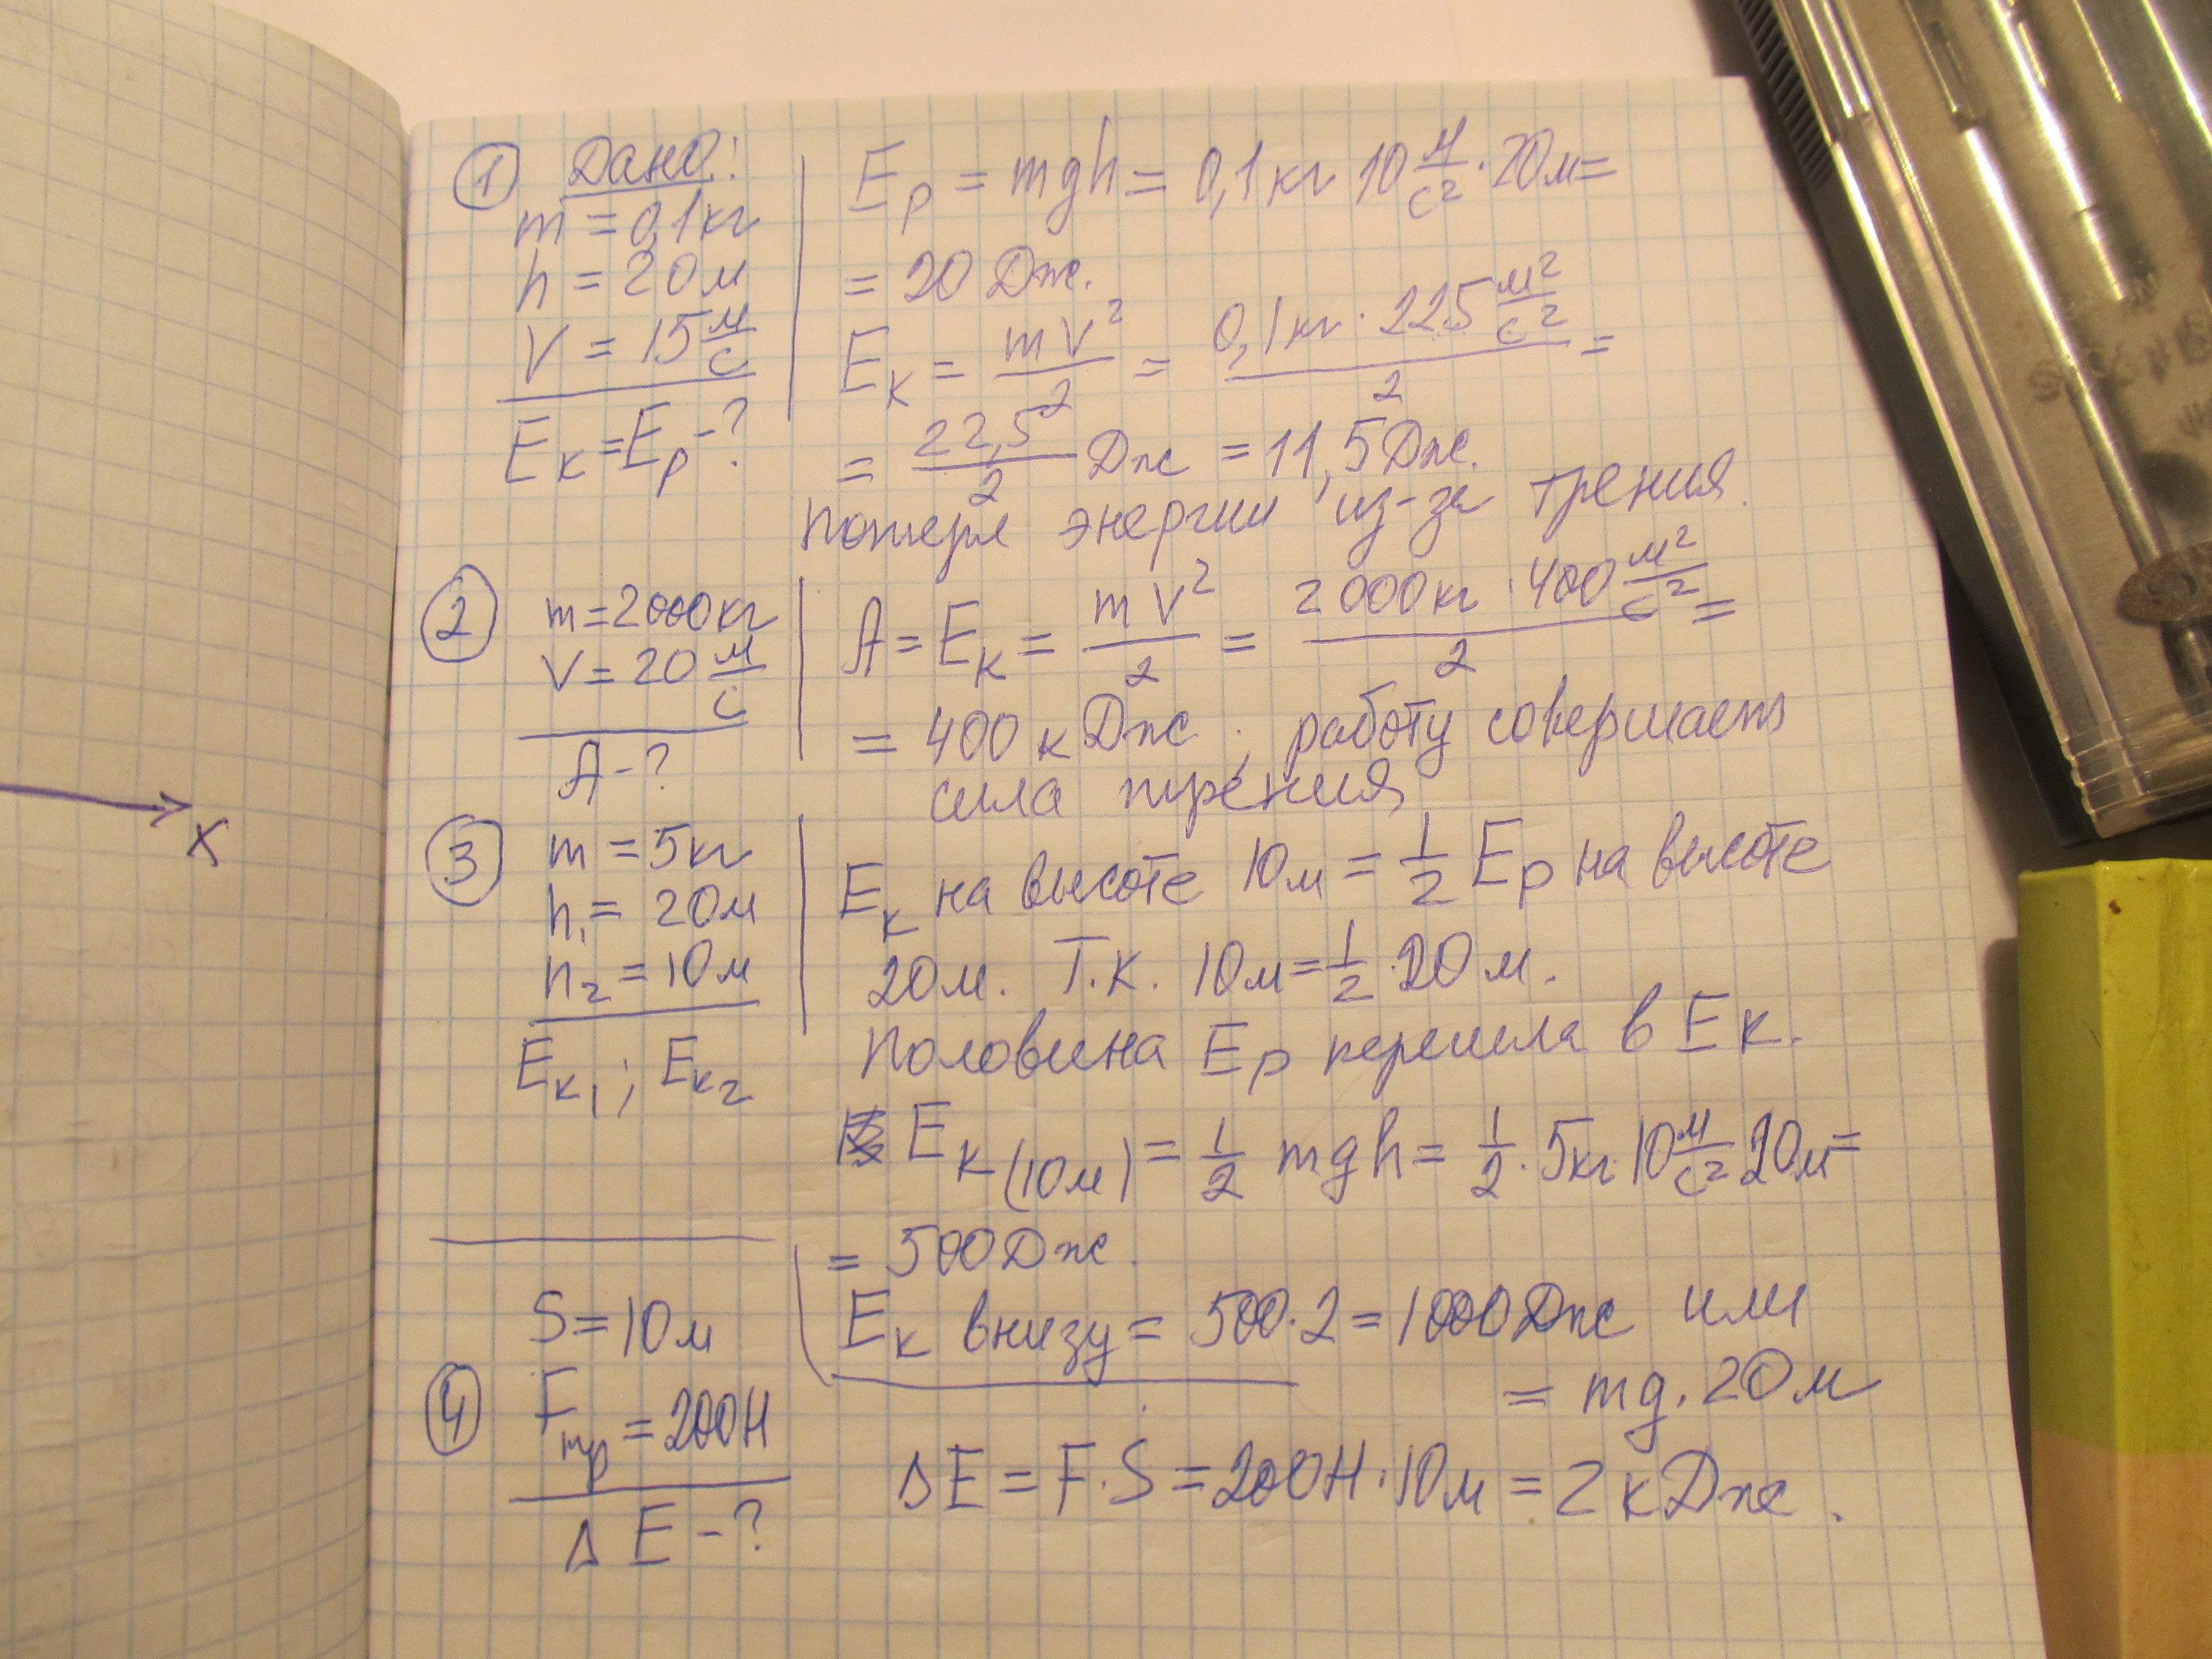 ① Дано:
m = 0,1 кг
h = 20 м
V = 15 м/с
Eк = Eр - ?
Eр = mgh = 0,1 кг 10 м/с² · 20 м =
= 20 Дж.
Eк = mV²/2 = 0,1 кг · 225 м²/с² / 2 =
= 22,5²/2 Дж = 11,5 Дж.
потеря энергии из-за трения.
② m = 2000 кг
V = 20 м/с
A - ?
A = Eк = mV²/2 = 2000 кг · 400 м²/с² / 2 =
= 400 кДж ; работу совершает
сила трения
③ m = 5 кг
h₁ = 20 м
h₂ = 10 м
Eк₁ ; Eк₂
Eк на высоте 10 м = 1/2 Eр на высоте
20 м. Т.к. 10 м = 1/2 · 20 м.
Половина Eр перешла в Eк.
Eк (10 м) = 1/2 mgh = 1/2 · 5 кг · 10 м/с² 20 м =
= 500 Дж.
Eк внизу = 500 · 2 = 1000 Дж или
= mg · 20 м
④ S = 10 м
Fтр = 200 Н
Δ E - ?
ΔE = F · S = 200 Н · 10 м = 2 кДж.
X